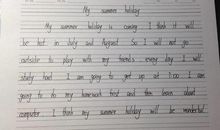 My summer holiday
My summer holiday is coming. I think it will
be hot in July and August. So I will not go
outside to play with my friends every day. I will
study hard. I am going to get up at 7:00. I am
going to do my homework first and then learn about
computer. I think my summer holiday will be wonderful.